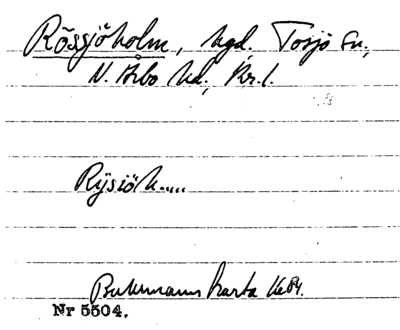 Rössjöholm, hgd. Tosjö sn,
N. Åbo hd, Kr. l.
Rÿsiöh....
Buhrmanns karta 1684.
Nr 5504.